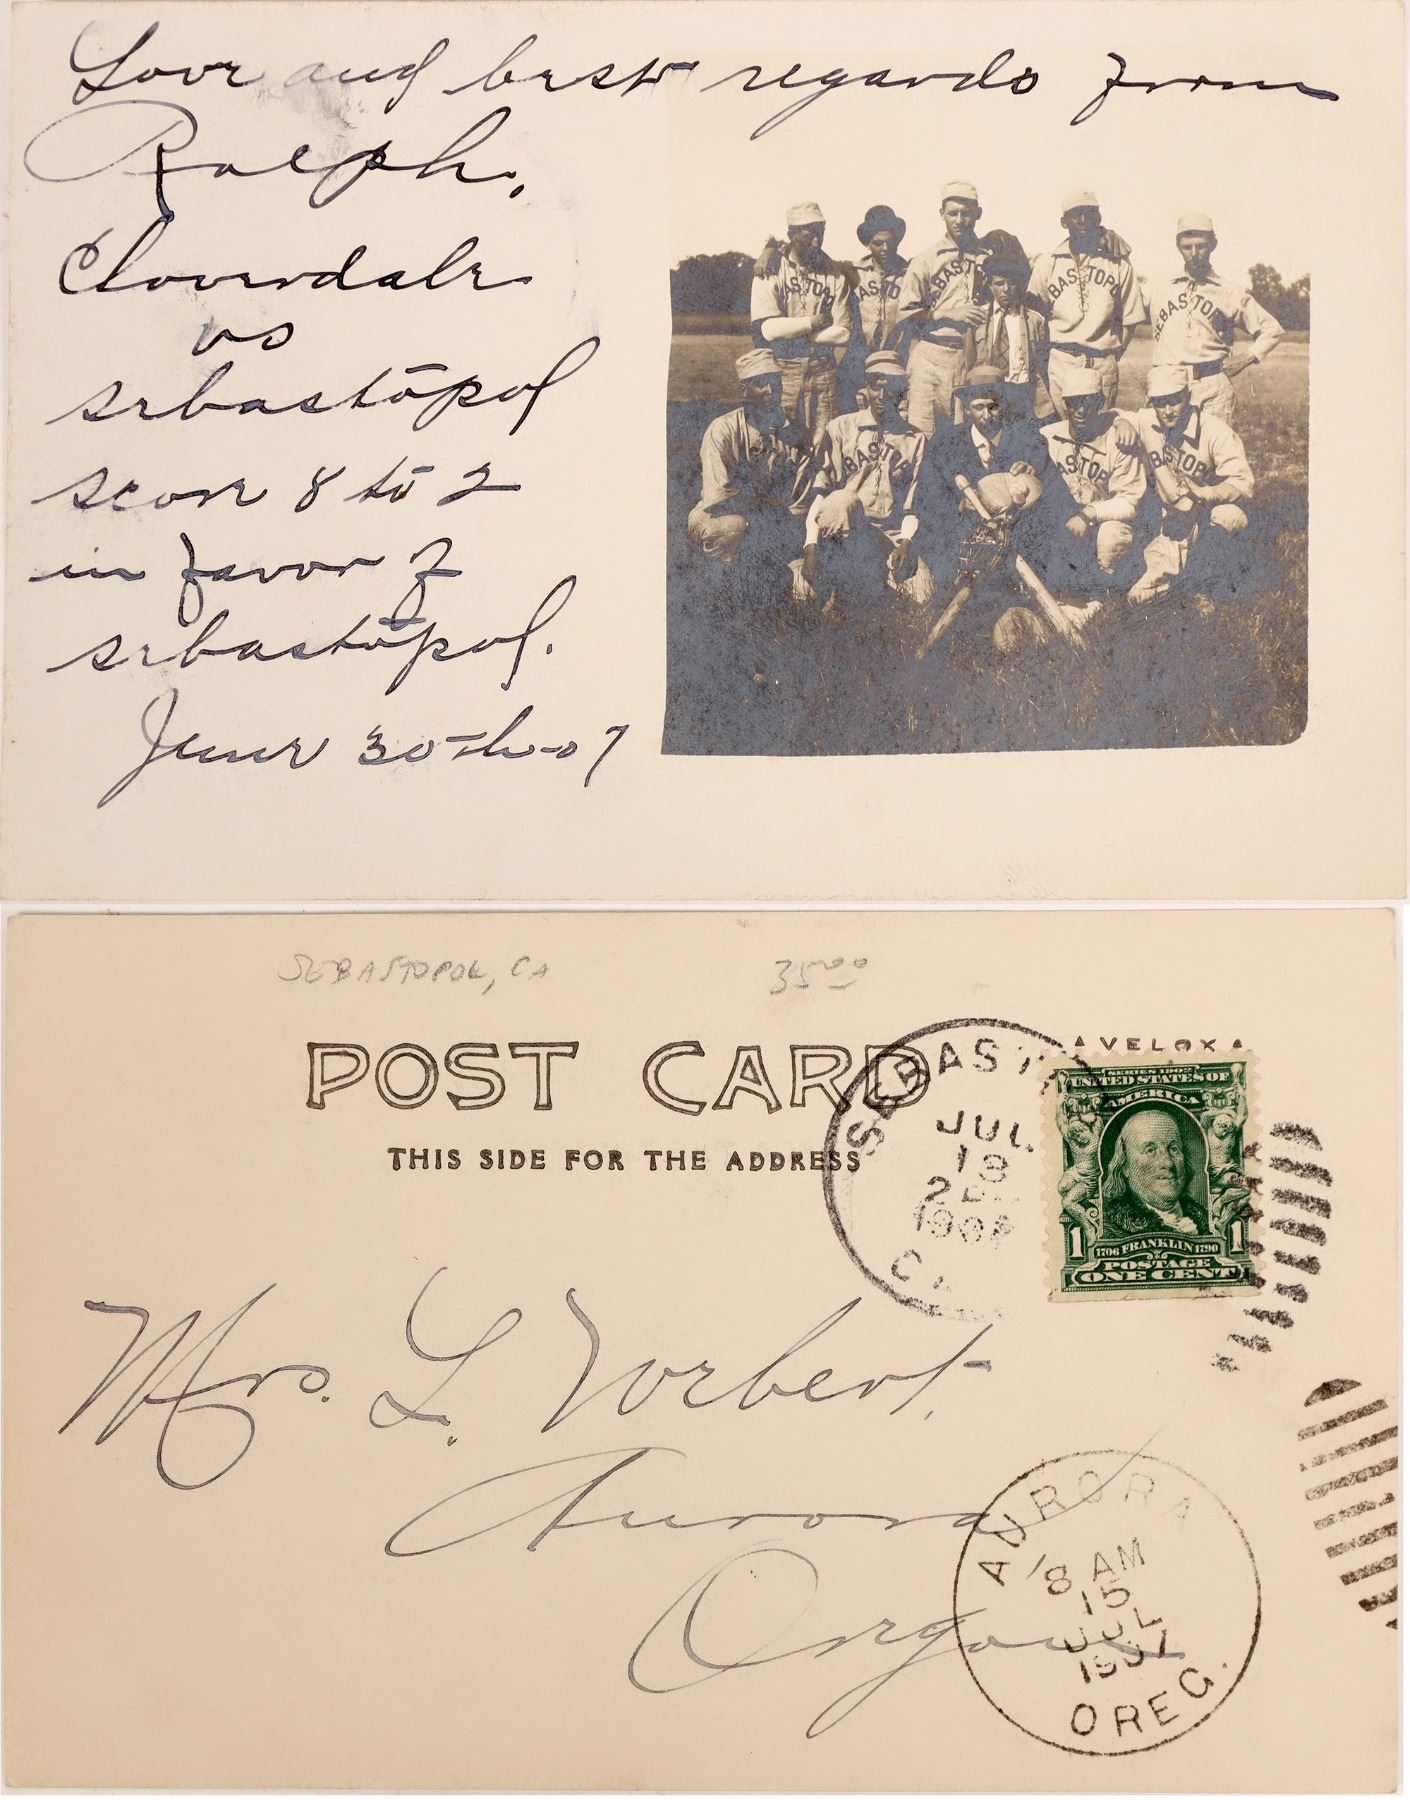 Love and best regards from
Ralph.
Cloverdale
vs
sebastopol
score 8 to 2
in favor of
sebastopol.
June 30-th-07
SEBASTOPO
SEBASTOPOL
SEBASTOPO
SEBASTOP
SEBASTOPOL, CA 35.00
POST CARD
THIS SIDE FOR THE ADDRESS
VELOX
SEBASTO
JUL
CAL
SERIES 1902
UNITED STATES OF
AMERICA
1 1706 FRANKLIN 1790 1
POSTAGE
ONE CENT
Mrs. L. Vorbert.
Aurora
Oregon
AURORA
8 AM
15
JUL
1907
OREG.